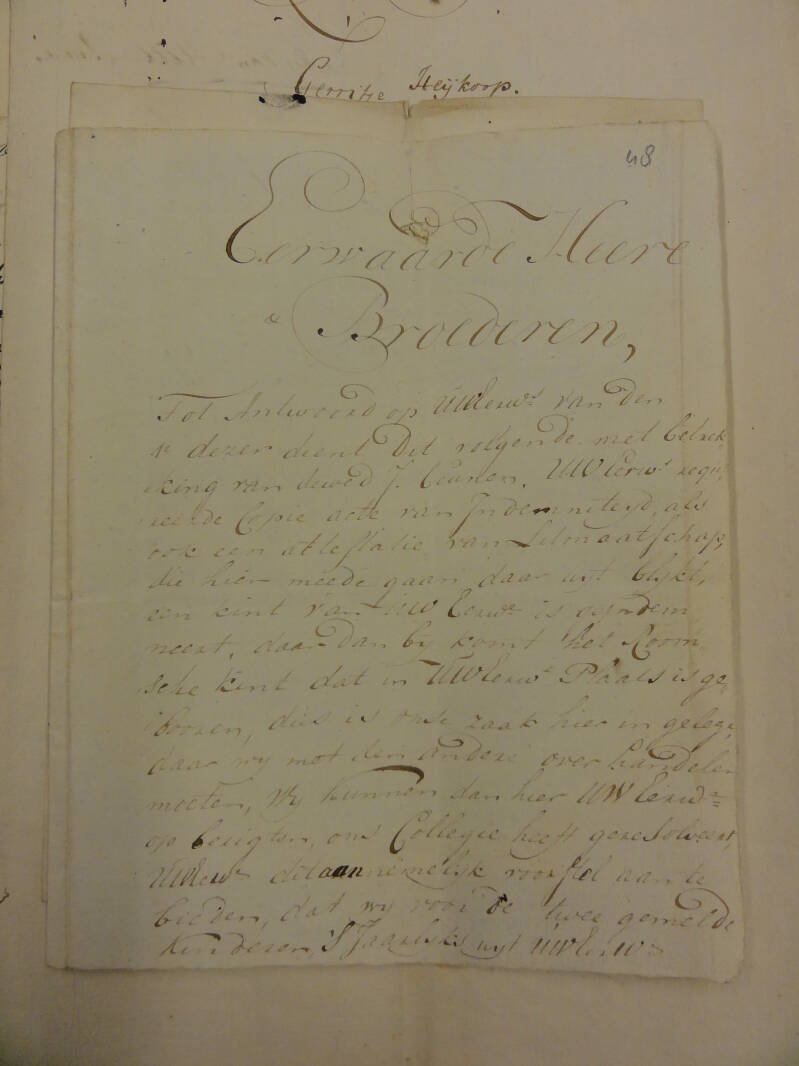 Gerritje Heijkoop.
48
Eerwaarde Heere
& Broederen,
Tot Antwoord op UWEerws van den
dezer dient dit volgende met betrek
king van dewed J. Ceunen. UWEerws requi
reerde Copie acte van Indemniteijd, als
ook een attestatie van Litmaatschap,
die hier meede gaan daar uyt blijkt,
een kint van UW Eerws is geindem
neert, daar Dan by komt het Room
sche kint dat in UWEerws Plaats is ge
booren, dus is onse zaak hier in gelege,
daar wy met den andere over handelen
moeten, Wy kunnen dan hier UW Eerws
op berigten, ons Collegie heeft geresolveert,
UWEerws dit aannemelijk voorstel aan te
bieden, dat wy voor de twee gemelde
kinderen, 'S Jaarlijks uyt UWEerws